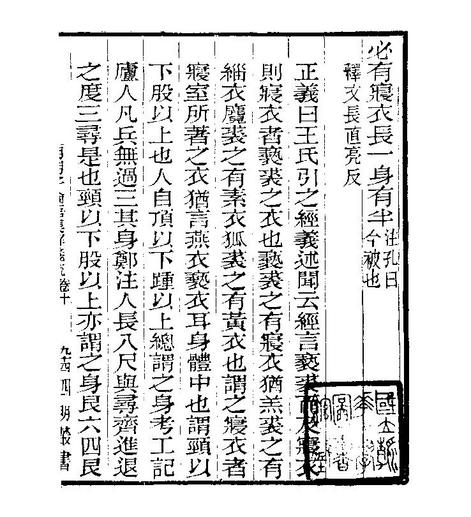 必有寢衣長一身有半注孔曰今被也
釋文長直亮反
正義曰王氏引之經義述聞云經言褻裘而及寢衣
則寢衣者褻裘之衣也褻裘之有寢衣猶羔裘之有
緇衣麑裘之有素衣狐裘之有黃衣也謂之寢衣者
寢室所著之衣猶言燕衣褻衣耳身體中也謂頸以
下股以上也人自頂以下踵以上總謂之身考工記
廬人凡兵無過三其身鄭注人長八尺與尋齊進退
之度三尋是也頸以下股以上亦謂之身艮六四艮
四明叢書